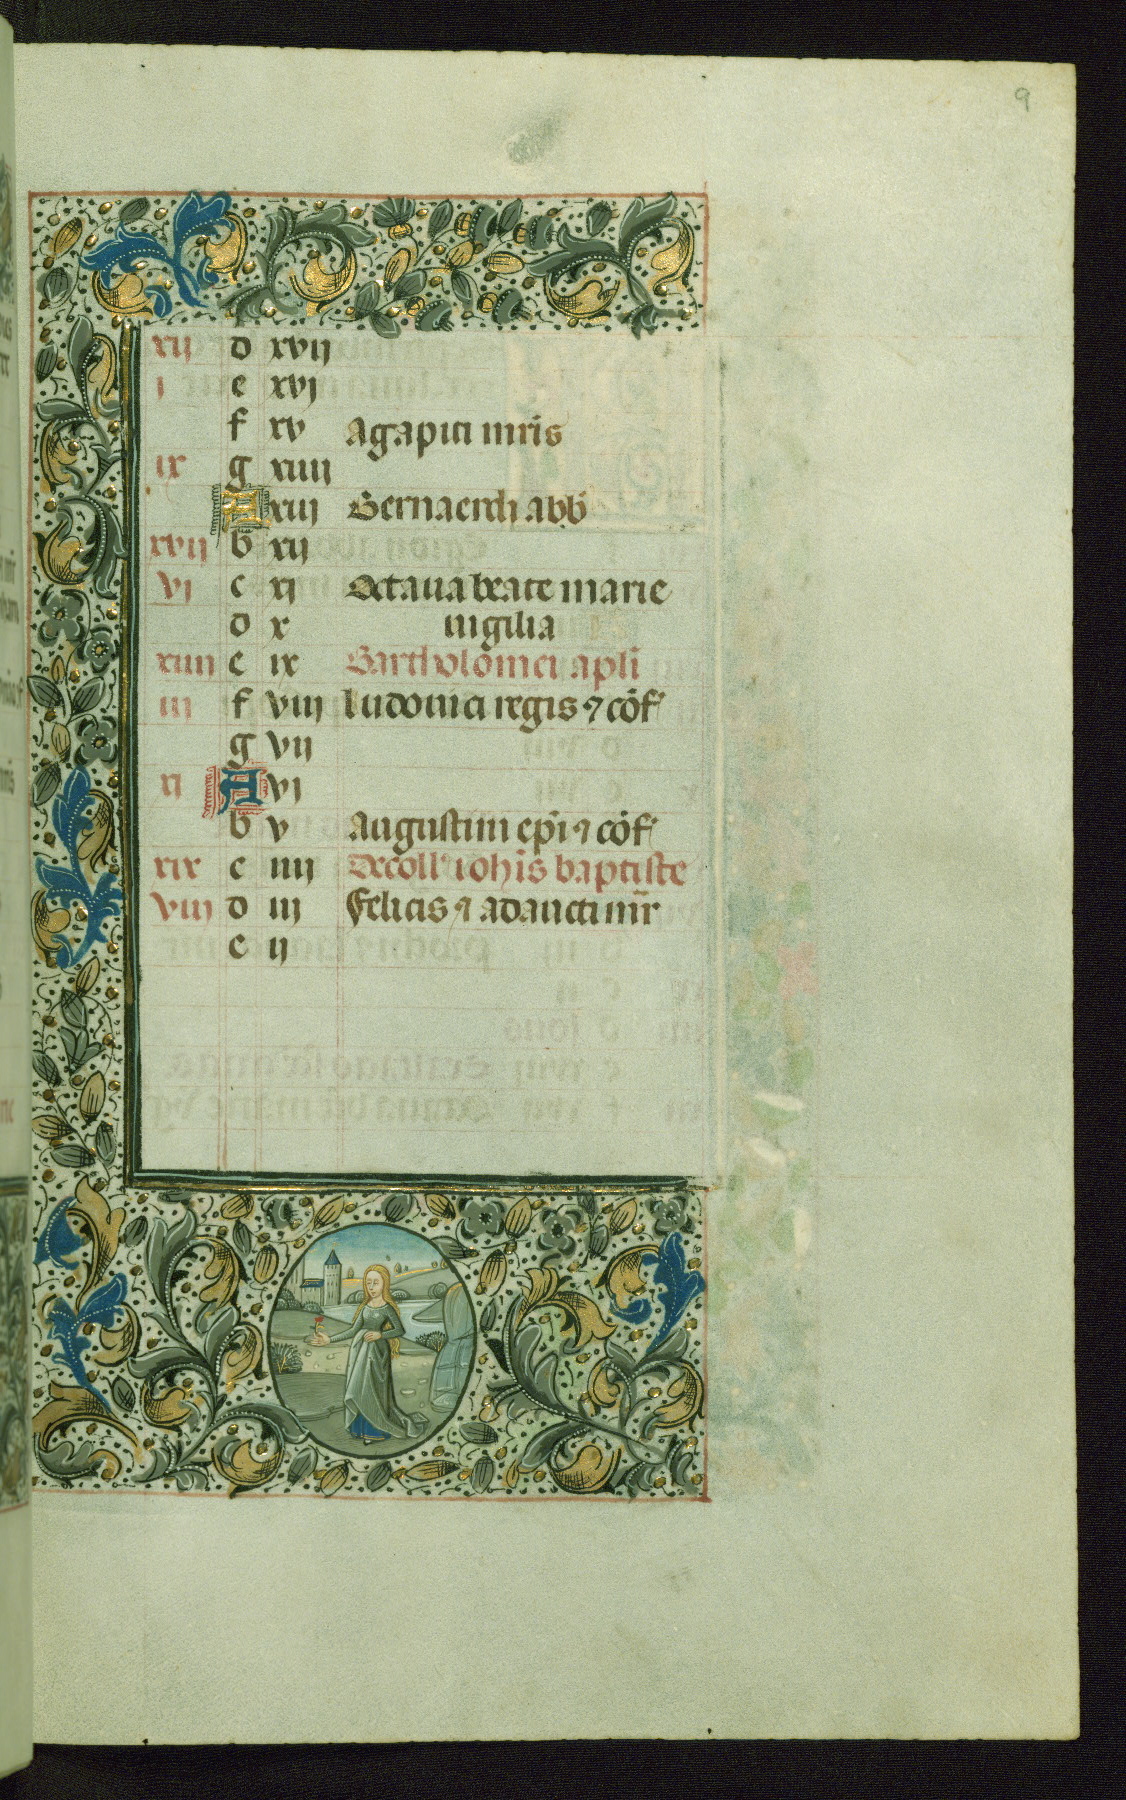 9
xii d xvij
i e xvj
f xv Agapiti mr̄is
ix g xiiii
A xiij Bernaerdi abb̄
xvii b xij
vi c xj Octaua beate marie
d x uigilia
xiiii e ix Bartholomei apl̄i
iii f viij Ludouici regis ⁊ cōf
g vij
xi A vj
b v Augustini ep̄i ⁊ cōf
xix c iiij Decoll' ioh̄is baptiste
viii d iij Felicis ⁊ adaucti mr̄
e ij